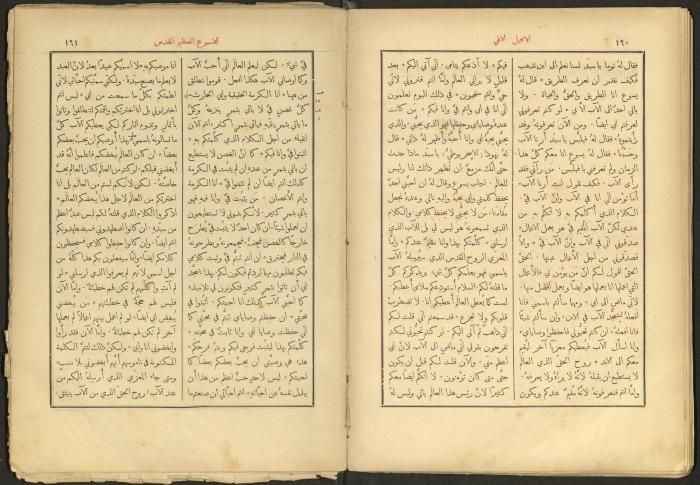 ١٦٠
الانجيل الالهي
فقال له توما يا سيد لسنا نعلم الى اين تذهب
فكيف نقدر ان نعرف الطريق * قال له
يسوع انا الطريق والحق والحياة * لا
ياتي احد الى الآب الا بي * لو كنتم تعرفوني
لعرفتم ابي ايضاً * ومن الآن تعرفونه وقد
رأيتموه * قال له فيلبس يا سيد أرنا الآب
وحسبنا * قال له يسوع انا معكم كل هذا
الزمان ولم تعرفني يا فيلبس * من رآني فقد
رأى الآب * فكيف تقول انت أرنا الآب *
أما تؤمن اني انا في الآب وان الآب فيّ *
الكلام الذي أكلمكم به لا أتكلم به من
عندي لكن الآب المقيم فيّ هو يعمل الاعمال *
صدقوني اني في الآب وان الآب فيّ * والا
فصدقوني من اجل الأعمال عينها * الحق
الحق اقول لكم ان من يؤمن بي فالأعمال
التي اعملها انا يعملها هو ايضاً ويعمل افضل منها *
لاني ماضٍ الى ابي * ومهما سألتم باسمي فانا
افعله ليتمجد الآب في الابن * وان سألتم شيئاً
باسمي فانا افعله * ان كنتم تحبوني فاحفظوا وصاياي *
وانا اسأل الآب فيعطيكم معزياً آخر ليقيم
معكم الى الابد * روح الحق الذي العالم
لا يستطيع ان يقبله لانه لا يراه ولا يعرفه *
وانا
فيكم * لا أدعكم يتامى * اني آتي اليكم * بعد
قليل لا يراني العالم وأما انتم فترونني لاني
حيّ وانتم ستحيون * في ذلك اليوم تعلمون
اني انا في ابي وانتم فيّ وانا فيكم * من كانت
عنده وصاياي وحفظها فهو الذي يحبني * والذي
يحبني يحبه ابي وانا أحبه وأظهر له ذاتي * قال
له يهوذا
للعالم * اجاب يسوع وقال له ان احبني احد
يحفظ كلمتي وابي يحبه واليه نأتي وعنده نجعل
مقامنا * من لا يحبني لا يحفظ كلامي * والكلام
الذي تسمعونه ليس هو لي بل للآب الذي
ارسلني * كلمتكم بهذا وانا مقيم عندكم *
المعزي الروح القدس الذي سيرسله الآب
باسمي فهو يعلمكم كل شيء ويذكركم كل
ما قلته لكم * السلام أستودعكم سلامي أعطيكم *
لست كما يعطي العالم أعطيكم انا * لا تضطرب
قلوبكم ولا تجزع * قد سمعتم اني قلت لكم
اني ذاهب ثم آتي اليكم * لو كنتم تحبونني لكنتم
تفرحون بقولي اني ماضٍ الى الآب لان ابي
اعظم مني * والآن قلت لكم قبل ان يكون
حتى متى كان تؤمنون * لا أتكلم ايضاً معكم
كثيراً لان رئيس هذا العالم يأتي وليس له
للاسبوع العظيم المقدس
١٦١
فيّ شيء * لكن ليعلم العالم اني أحب الآب
وكما اوصاني الآب هكذا افعل * قوموا ننطلق
من ههنا * انا الكرمة الحقيقية وابي الحارث *
كل غصن فيّ لا يأتي بثمر ينزعه وكل
ما يأتي بثمر ينقيه فيأتي بثمر أكثر * انتم الآن
انقياء من اجل الكلام الذي كلمتكم به *
اثبتوا فيّ وانا فيكم * كما ان الغصن لا يستطيع
ان يأتي بثمر من عنده ان لم يثبت في الكرمة
كذلك انتم ايضاً ان لم تثبتوا فيّ * انا الكرمة
وانتم الأغصان * من يثبت فيّ وانا فيه فهو
يأتي بثمر كثير * لانكم بدوني لا تستطيعون
ان تعملوا شيئاً * ان كان احد لا يثبت فيّ يُطرح
خارجاً كالغصن فيجف فيجمعونه ويطرحونه
في النار فيحترق * ان انتم ثبتم فيّ وثبت كلامي
فيكم تطلبون مهما اردتم فيكون لكم * بهذا يتمجد
ابي ان تأتوا بثمر كثير فتكونون لي تلاميذ *
كما احبني الآب كذلك انا احببتكم * اثبتوا في
محبتي * ان حفظتم وصاياي ثبتم في محبتي كما
اني حفظت وصايا ابي وانا ثابت في محبته *
كلمتكم بهذا ليثبت فرحي فيكم ويتم فرحكم *
هذه هي وصيتي ان يحب بعضكم بعضاً كما
احببتكم * ليس لاحد حب اعظم من هذا ان
يبذل نفسه عن احبائه * انتم احبائي ان صنعتم ما
انا موصيكم به * لا اسميكم عبيداً بعد لان العبد
لا يعلم ما يصنع سيده * ولكني سميتكم احبائي لاني
اعلمتكم بكل ما سمعت من ابي * ليس انتم
اخترتموني بل انا اخترتكم واقمتكم لتنطلقوا وتأتوا
بأثمار وتدوم أثماركم لكي يعطيكم الآب كل
ما سألتموه باسمي * بهذا اوصيكم ان يحب بعضكم
بعضاً * ان كان العالم يبغضكم فاعلموا انه قد
أبغضني قبلكم * لو كنتم من العالم لكان العالم يحب
خاصته * لكن لانكم لستم من العالم بل انا
اخترتكم من العالم لاجل هذا يبغضكم العالم *
اذكروا الكلام الذي قلته لكم ليس عبد اعظم
من سيده * ان كانوا اضطهدوني فسيضطهدونكم
انتم ايضاً * وان كانوا حفظوا كلامي فسيحفظون
كلامكم ايضاً * وانما سيفعلون بكم هذا كله من
اجل اسمي لانهم لم يعرفوا الذي ارسلني * لو
لم آت وأكلمهم لم تكن لهم خطيئة * وأما الآن
فليس لهم حجة في خطيئتهم * من يبغضني
يبغض ابي ايضاً * لو لم اعمل بينهم اعمالاً لم يعملها
آخر لم تكن لهم خطيئة * وأما الآن فقد رأوا
وابغضوني انا وابي * ولكن ذلك لتتم الكلمة
المكتوبة في ناموسهم أنهم أبغضوني بلا سبب *
ومتى جاء المعزي الذي أرسله اليكم من
عند الآب روح الحق الذي من الآب ينبثق